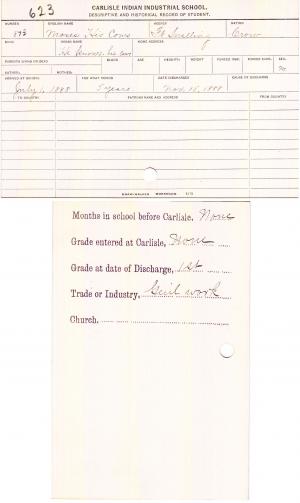 623
CARLISLE INDIAN INDUSTRIAL SCHOOL.
DESCRIPTIVE AND HISTORICAL RECORD OF STUDENT.
NUMBER ENGLISH NAME AGENCY NATION
Moses His Cows Ft Snelling Crow
BAND INDIAN NAME HOME ADDRESS
He Knows his Cows
PARENTS LIVING OR DEAD BLOOD AGE HEIGHT WEIGHT FORCED INSP. FORCED EXPR. SEX
M.
FATHER. MOTHER.
ARRIVED AT SCHOOL FOR WHAT PERIOD DATE DISCHARGED CAUSE OF DISCHARGE
July 1, 1885 5 years Nov. 15, 1888
TO COUNTRY PATRONS NAME AND ADDRESS FROM COUNTRY
Months in school before Carlisle, None
Grade entered at Carlisle,
Grade at date of Discharge, 1st
Trade or Industry, Girl work
Church,